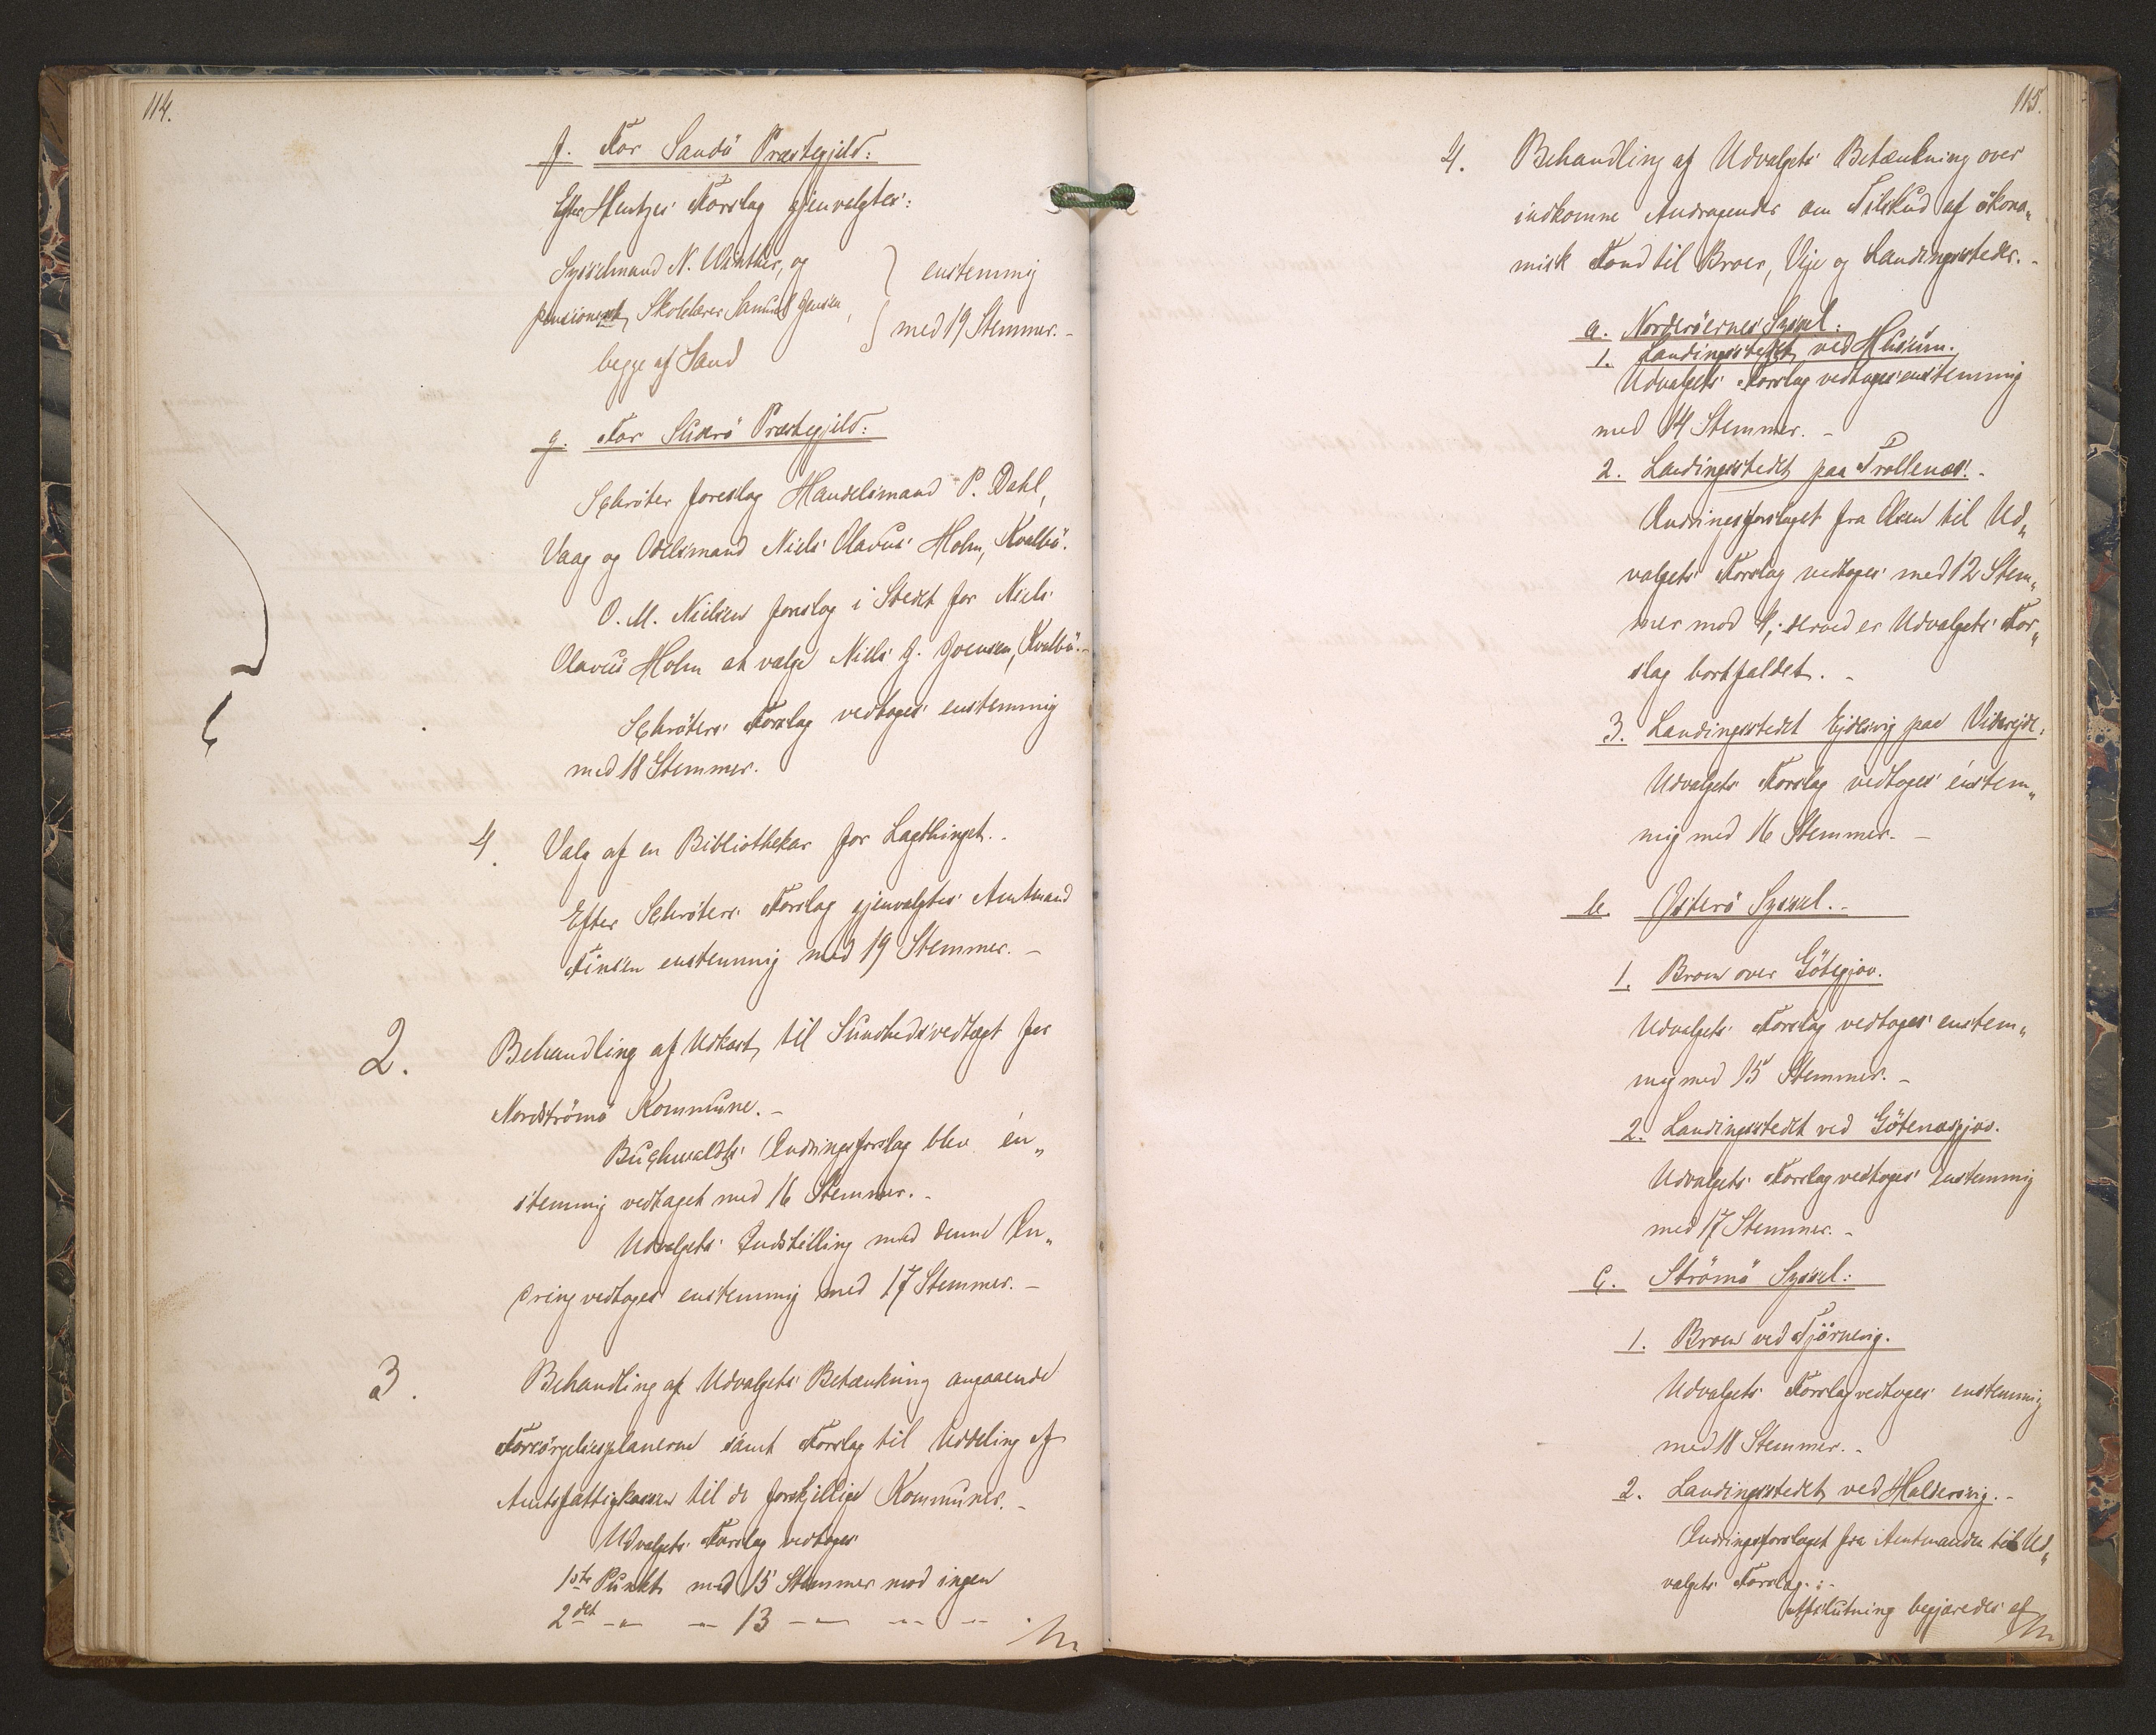 114.
f. For Sandö Præstegjeld:
Efter Hentzes Forslag gjenvalgtes:
Sysselmand N. Winther, og } enstemmig
pensioneret Skolelærer Samuel Jensen, } med 19 Stemmer. -
begge af Sand
g. For Suderö Præstegjeld:
Schröter foreslog Handelsmand P. Dahl,
Vaag og Odelsmand Niels Olavus Holm, Kvalbö.
O. M. Nielsen foreslog i Stedet for Niels
Olavus Holm at vælge Niels J. Joensen, Kvalbö. -
Schröters Forslag vedtoges enstemmig
med 18 Stemmer.
4. Valg af en Bibliothekar for Lagthinget. -
Efter Schröters Forslag gjenvalgtes Amtmand
Finsen enstemmig med 19 Stemmer. -
2. Behandling af Udkast til Sundhedsvedtægt for
Nordströmö Kommune. -
Buchwaldts Ændringsforslag blev en„
stemmig vedtaget med 16 Stemmer. -
Udvalgets Indstilling med denne Æn„
dring vedtoges enstemmig med 17 Stemmer. -
3. Behandling af Udvalgets Betænkning angaaende
Forsörgelsesplanerne samt Forslag til Uddeling af
Amtsfattigkassen til de forskjellige Kommuner. -
Udvalgets Forslag vedtoges
1ste Punkt med 15 Stemmer mod ingen
2det -"- -"- 13 -"- -"- -"-
115.
4. Behandling af Udvalgets Betænkning over
indkomne Andragender om Tilskud af ökono„
misk Fond til Broer, Veje og Landingssteder. -
a. Norderöernes Syssel:
1. Landingsstedet ved Husum.
Udvalgets Forslag vedtoges enstemmig
med 14 Stemmer. -
2. Landingsstedet paa Trollenæs. -
Ændringsforslaget fra Olsen til Ud„
valgets Forslag vedtoges med 12 Stem„
mer mod 4; derved er Udvalgets For„
slag bortfaldet. -
3. Landingsstedet Ejdesvig paa Viderejde.
Udvalgets Forslag vedtoges enstem„
mig med 16 Stemmer. -
b. Österö Syssel. -
1. Broen over Götegjov.
Udvalgets Forslag vedtoges enstem„
mig med 15 Stemmer. -
2. Landingsstedet ved Götenæsgjov.
Udvalgets Forslag vedtoges enstemmig
med 17 Stemmer. -
c. Strömö Syssel:
1. Broen ved Tjörnevig.
Udvalgets Forslag vedtoges enstemmig
med 18 Stemmer. -
2. Landingsstedet ved Haldersvig. -
Ændringsforslaget fra Amtmanden til Ud„
valgets Forslag: -
Afslutning begjæredes af